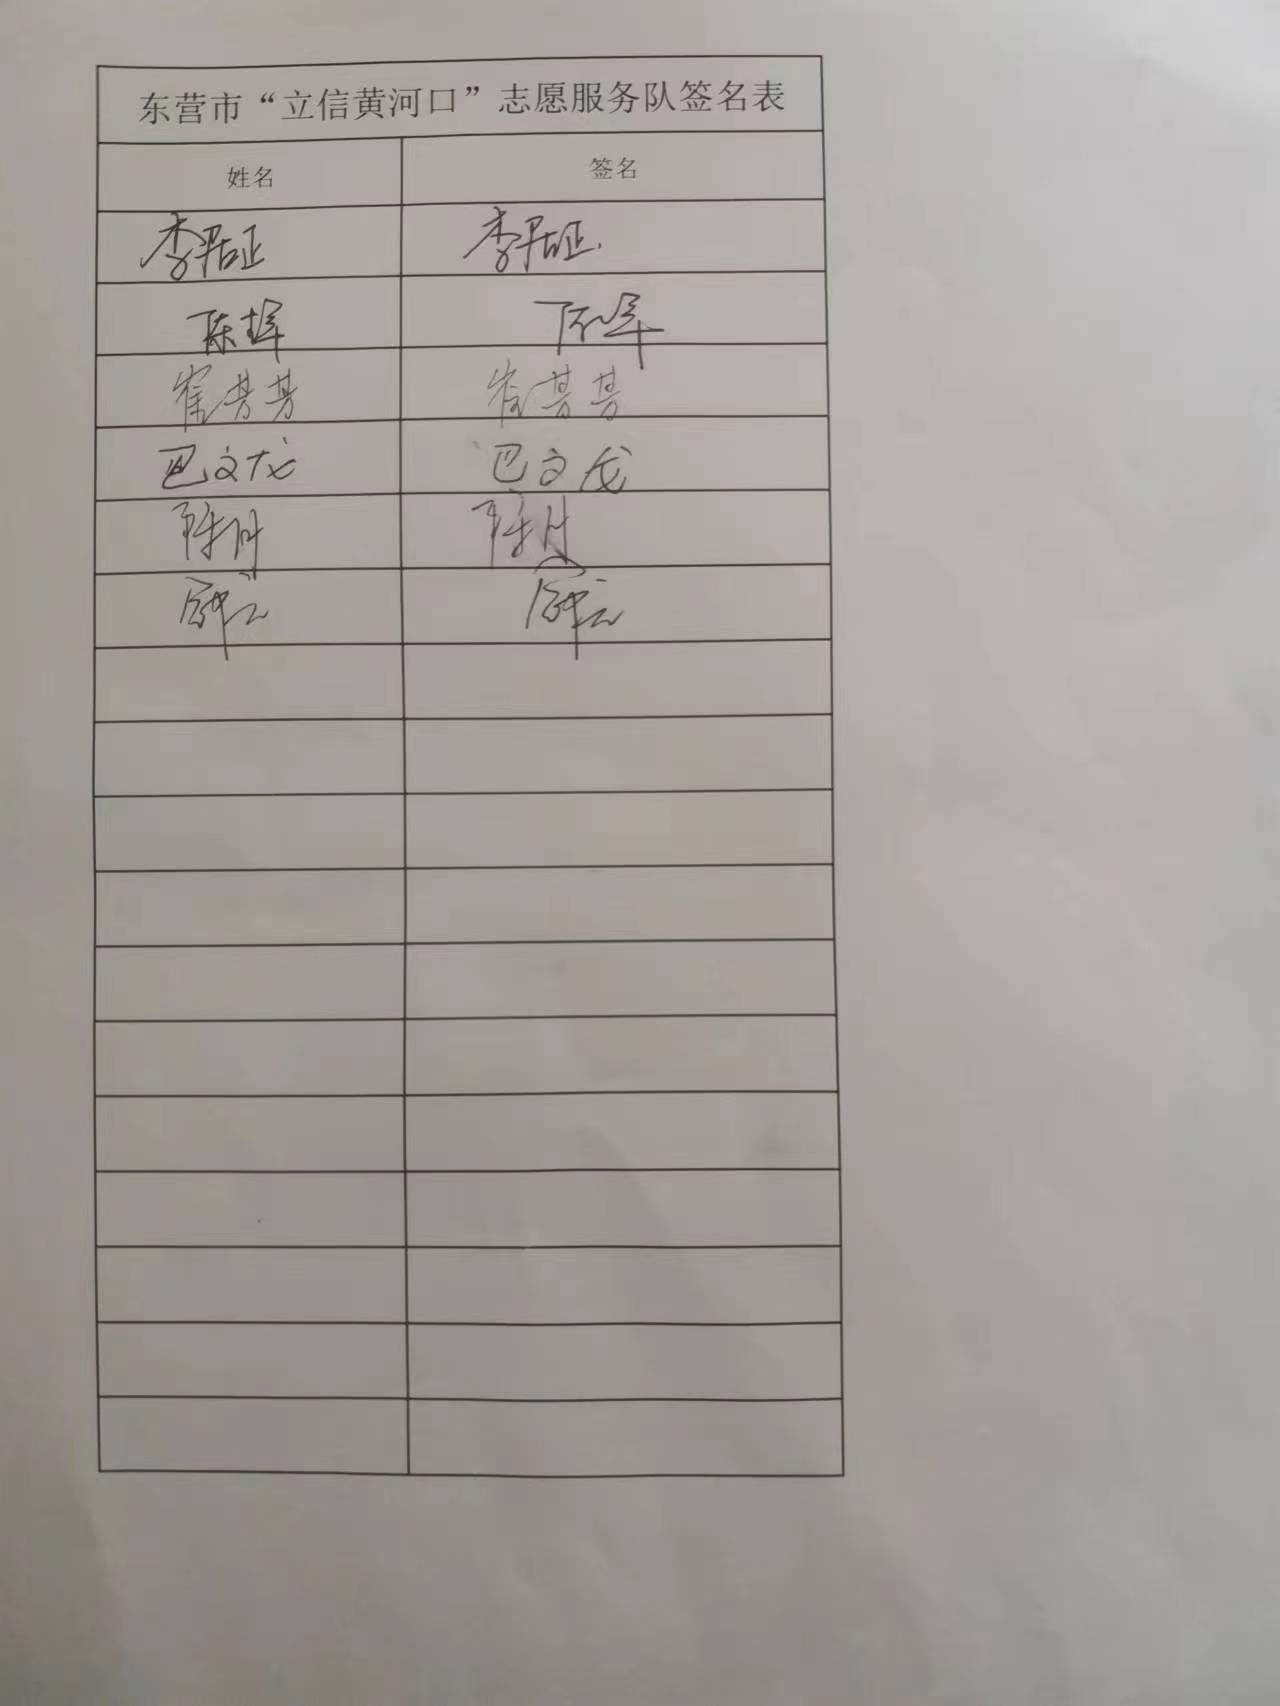 东营市“立信黄河口”志愿服务队签名表
姓名 签名
李居正 李居正
陈辉
崔芳芳 崔芳芳
巴文龙 巴文龙
陈丹 陈丹